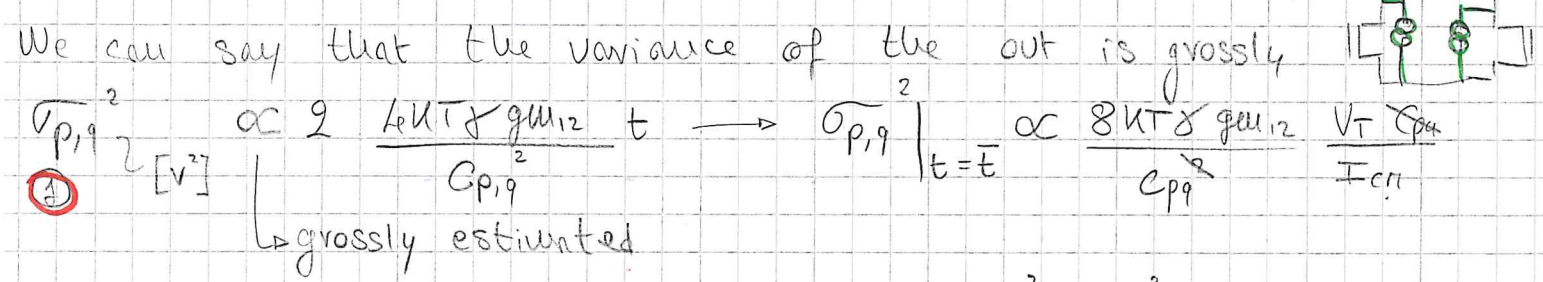 We can say that the variance of the out is grossly
σ_{p,q}² [V²] ∝ 2 \frac{4kTγ gm_{12}}{C_{p,q}²} t → σ_{p,q}² |_{t = \bar{t}} ∝ \frac{8kTγ gm_{12}}{C_{pq}²} \frac{V_T C_{pq}}{I_{CM}}
① ↳ grossly estimated